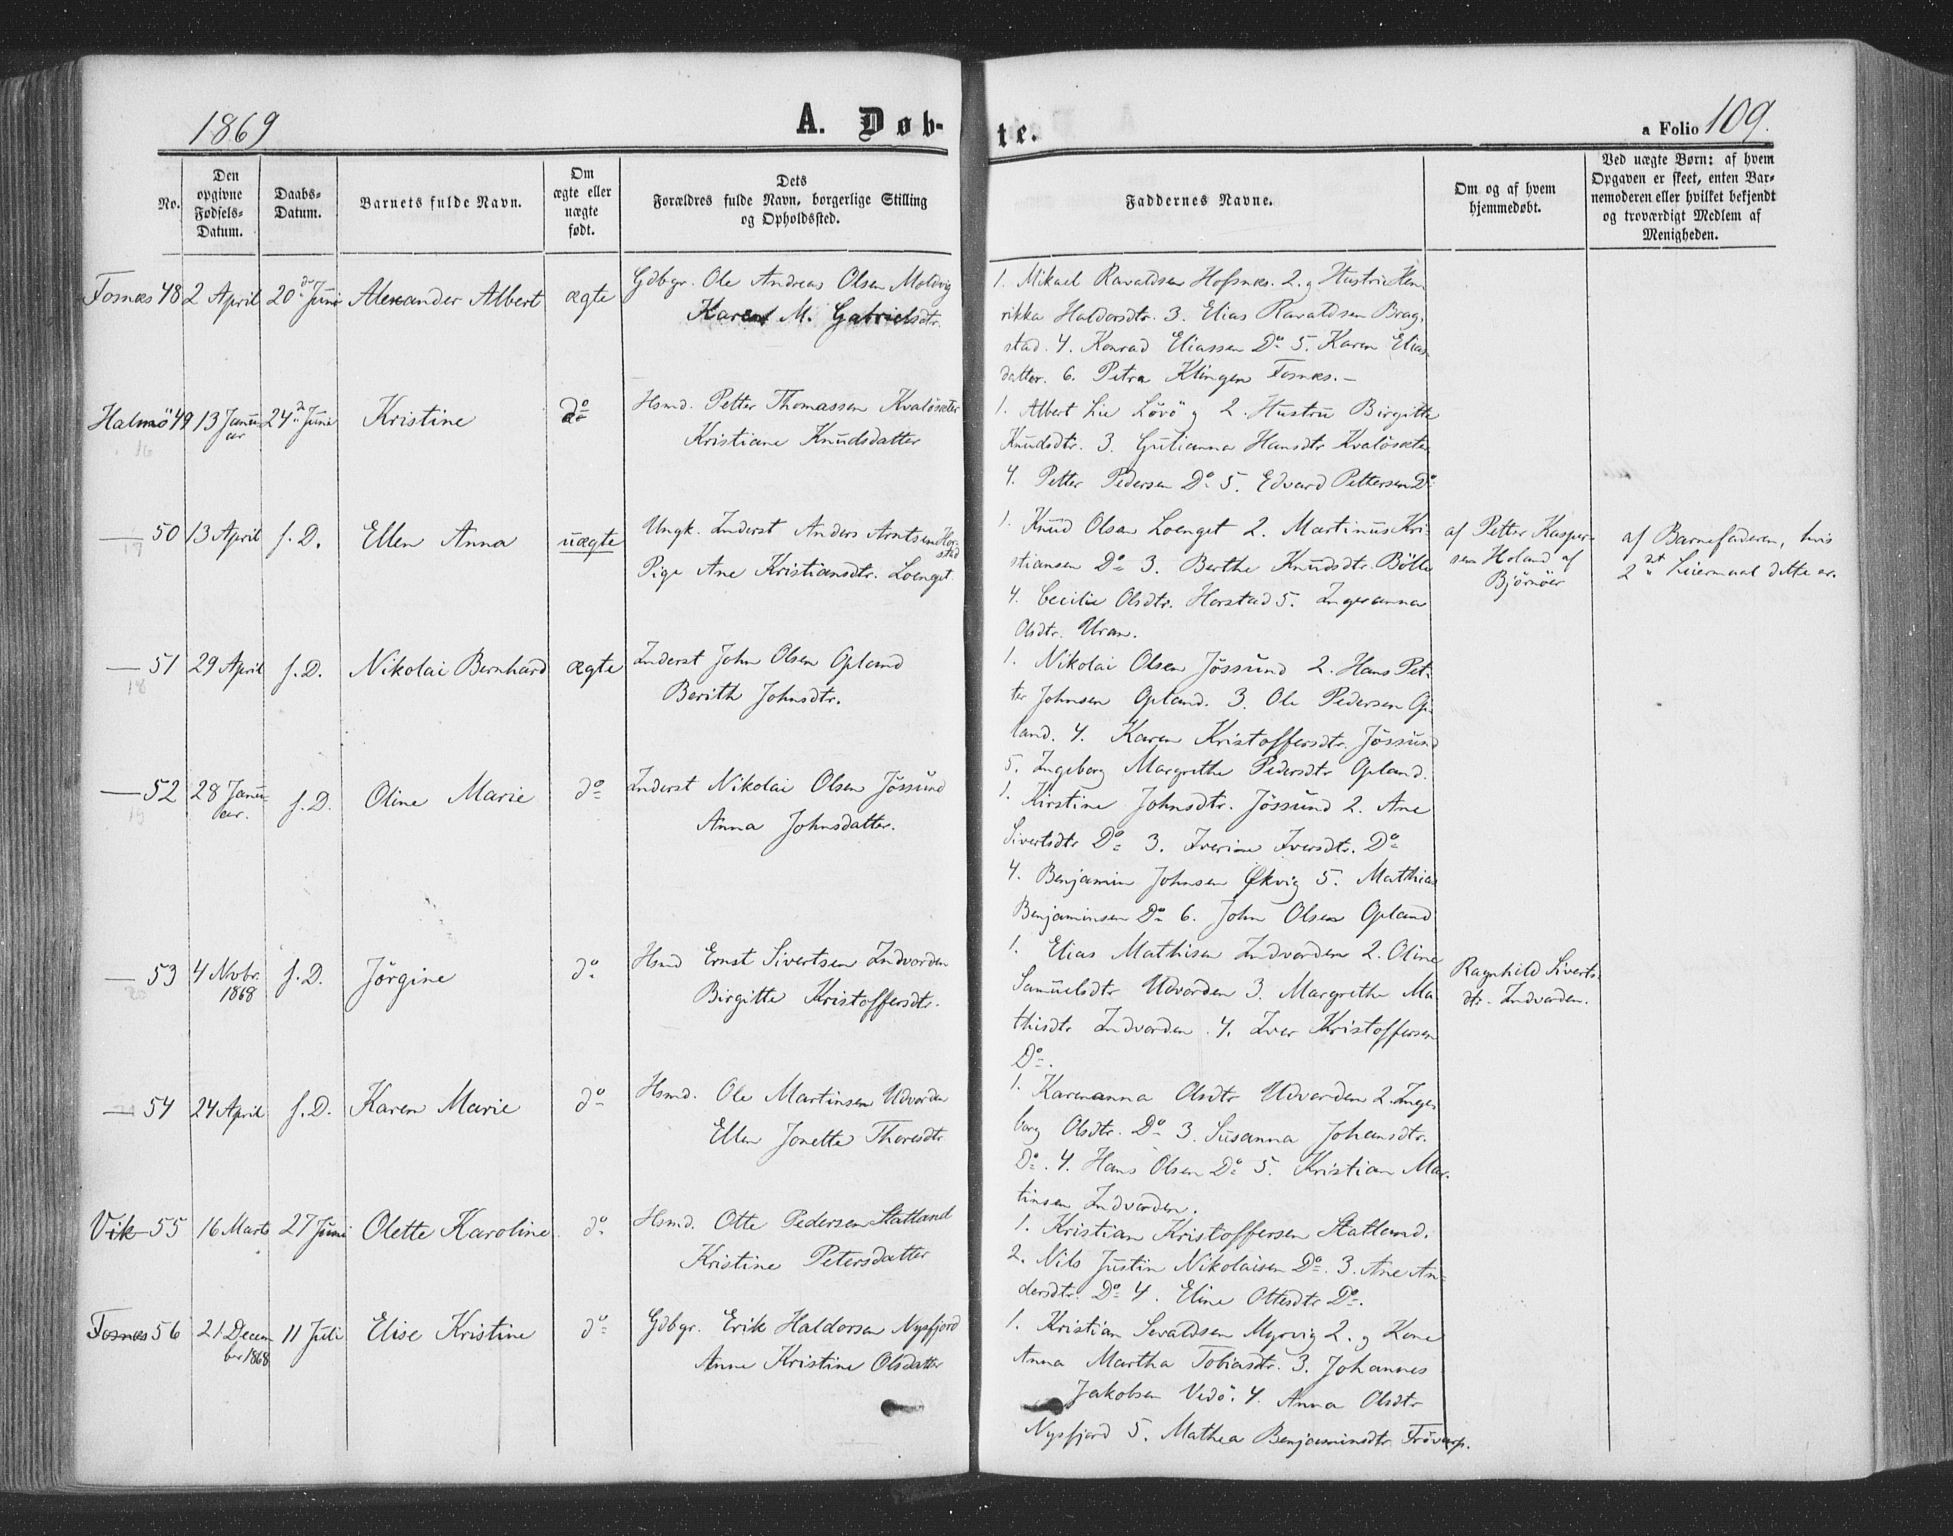 1869
A. Døb-
te.
a Folio 109.
No.
Den
opgivne
Fødsels-
Datum.
Daabs-
Datum.
Barnets fulde Navn.
Om
ægte eller
uægte
født.
Dets
Forældres fulde Navn, borgerlige Stilling
og Opholdssted.
Faddernes Navne.
Om og af hvem
hjemmedøbt.
Ved uægte Børn: af hvem
Opgaven er skeet, enten Bar-
nemoderen eller hvilket bekjendt
og troværdigt Medlem af
Menigheden.
Fosnæs 48 2 April 20de Juni Alexander Albert ægte
Gdbgr. Ole Andreas Olsen Moldvig
Karen M. Gabrielsdtr.
1. Mikael Ravaldsen Hofsnæs. 2. g Hustru Hen-
rikka Haldorsdtr. 3. Elias Ravaldsen Brag-
stad. 4. Konrad Eliassen Do 5. Karen Elias-
datter. 6. Petra Klingen Fosnæs.-
Halmö 49 13 Janu-
ar
24de Juni Kristine do
Hsmd. Petter Thomassen Kvalösæter
Kristiane Knudsdatter
1. Albert Lie Lövö g 2. Hustru Birgitte
Knudsdtr. 3. Gulianna Hansdtr Kvalösæte
4. Petter Pedersen Do 5. Edvard Pettersen Do
16
50 13 April s. D. Ellen Anna uægte
17
Ungk. Inderst Anders Arntsen Hor-
stad
Pige Ane Kristiansdtr. Loenget
1. Knud Olsen Loenget 2. Martinus Kri-
stiansen Do 3. Berthe Knudsdtr. Bölle
4. Cecilie Olsdtr. Horstad 5. Ingeranna
Olsdtr. Uran.
af Petter Kasper-
sen Holand af
Björnöer
af Barnefaderen, hvis
2det Leiermaal dette er.
51 29 April s. D. Nikolai Bernhard ægte
18
Inderst John Olsen Opland
Berith Johnsdtr.
1. Nikolai Olsen Jössund 2. Hans Pet-
ter Johnsen Opland. 3. Ole Pedersen Op-
land. 4. Karen Kristoffersdtr. Jössund
5. Ingeborg Margrethe Pedersdtr Opland.
52 28 Janu-
ar.
s. D. Oline Marie do
19
Inderst Nikolai Olsen Jössund
Anna Johnsdatter.
1. Kirstine Johnsdtr. Jössund 2. Ane
Sivertsdtr Do 3. Iverine Iversdtr. Do
4. Benjamin Johnsen Økvig 5. Mathias
Benjaminsen Do 6. John Olsen Opland
53 4 Novbr.
1868
s. D. Jörgine do
20
Hsmd Ernst Sivertsen Indvorden
Birgitte Kristoffersdtr.
1. Elias Mathisen Indvorden 2. Oline
Samuelsdtr Udvorden 3. Margrethe Ma-
thisdtr Indvorden. 4. Iver Kristoffersen
Do.
Ragnhild Siverts-
dtr. Indvorden.
54 24 April s. D. Karen Marie do
Hsmd. Ole Martinsen Udvorden
Ellen Jonetta Thoresdtr
1. Karenanna Olsdtr Udvorden 2. Inge-
borg Olsdtr. Do 3. Susanna Johansdtr.
Do. 4. Hans Olsen Do 5. Kristian Mar-
tinsen Indvorden.
Vik 55 16 Marts 27 Juni Olette Karoline do
Hsmd. Otte Pedersen Statland
Kristine Petersdatter
1. Kristian Kristoffersen Statland.
2. Nils Justin Nikolaisen Do. 3. Ane An-
dersdtr. Do 4. Eline Ottesdtr Do.
Fosnæs 56 21 Decem
ber 1868
11 Juli Elise Kristine do
Gdbgr. Erik Haldorsen Nysfjord
Anne Kristine Olsdatter
1. Kristian Sevaldsen Myrvig 2. g Kone
Anna Martha Tobiasdtr. 3. Johannes
Jakobsen Vedö. 4. Anna Olsdtr
Nysfjord 5. Mathea Benjaminsdtr